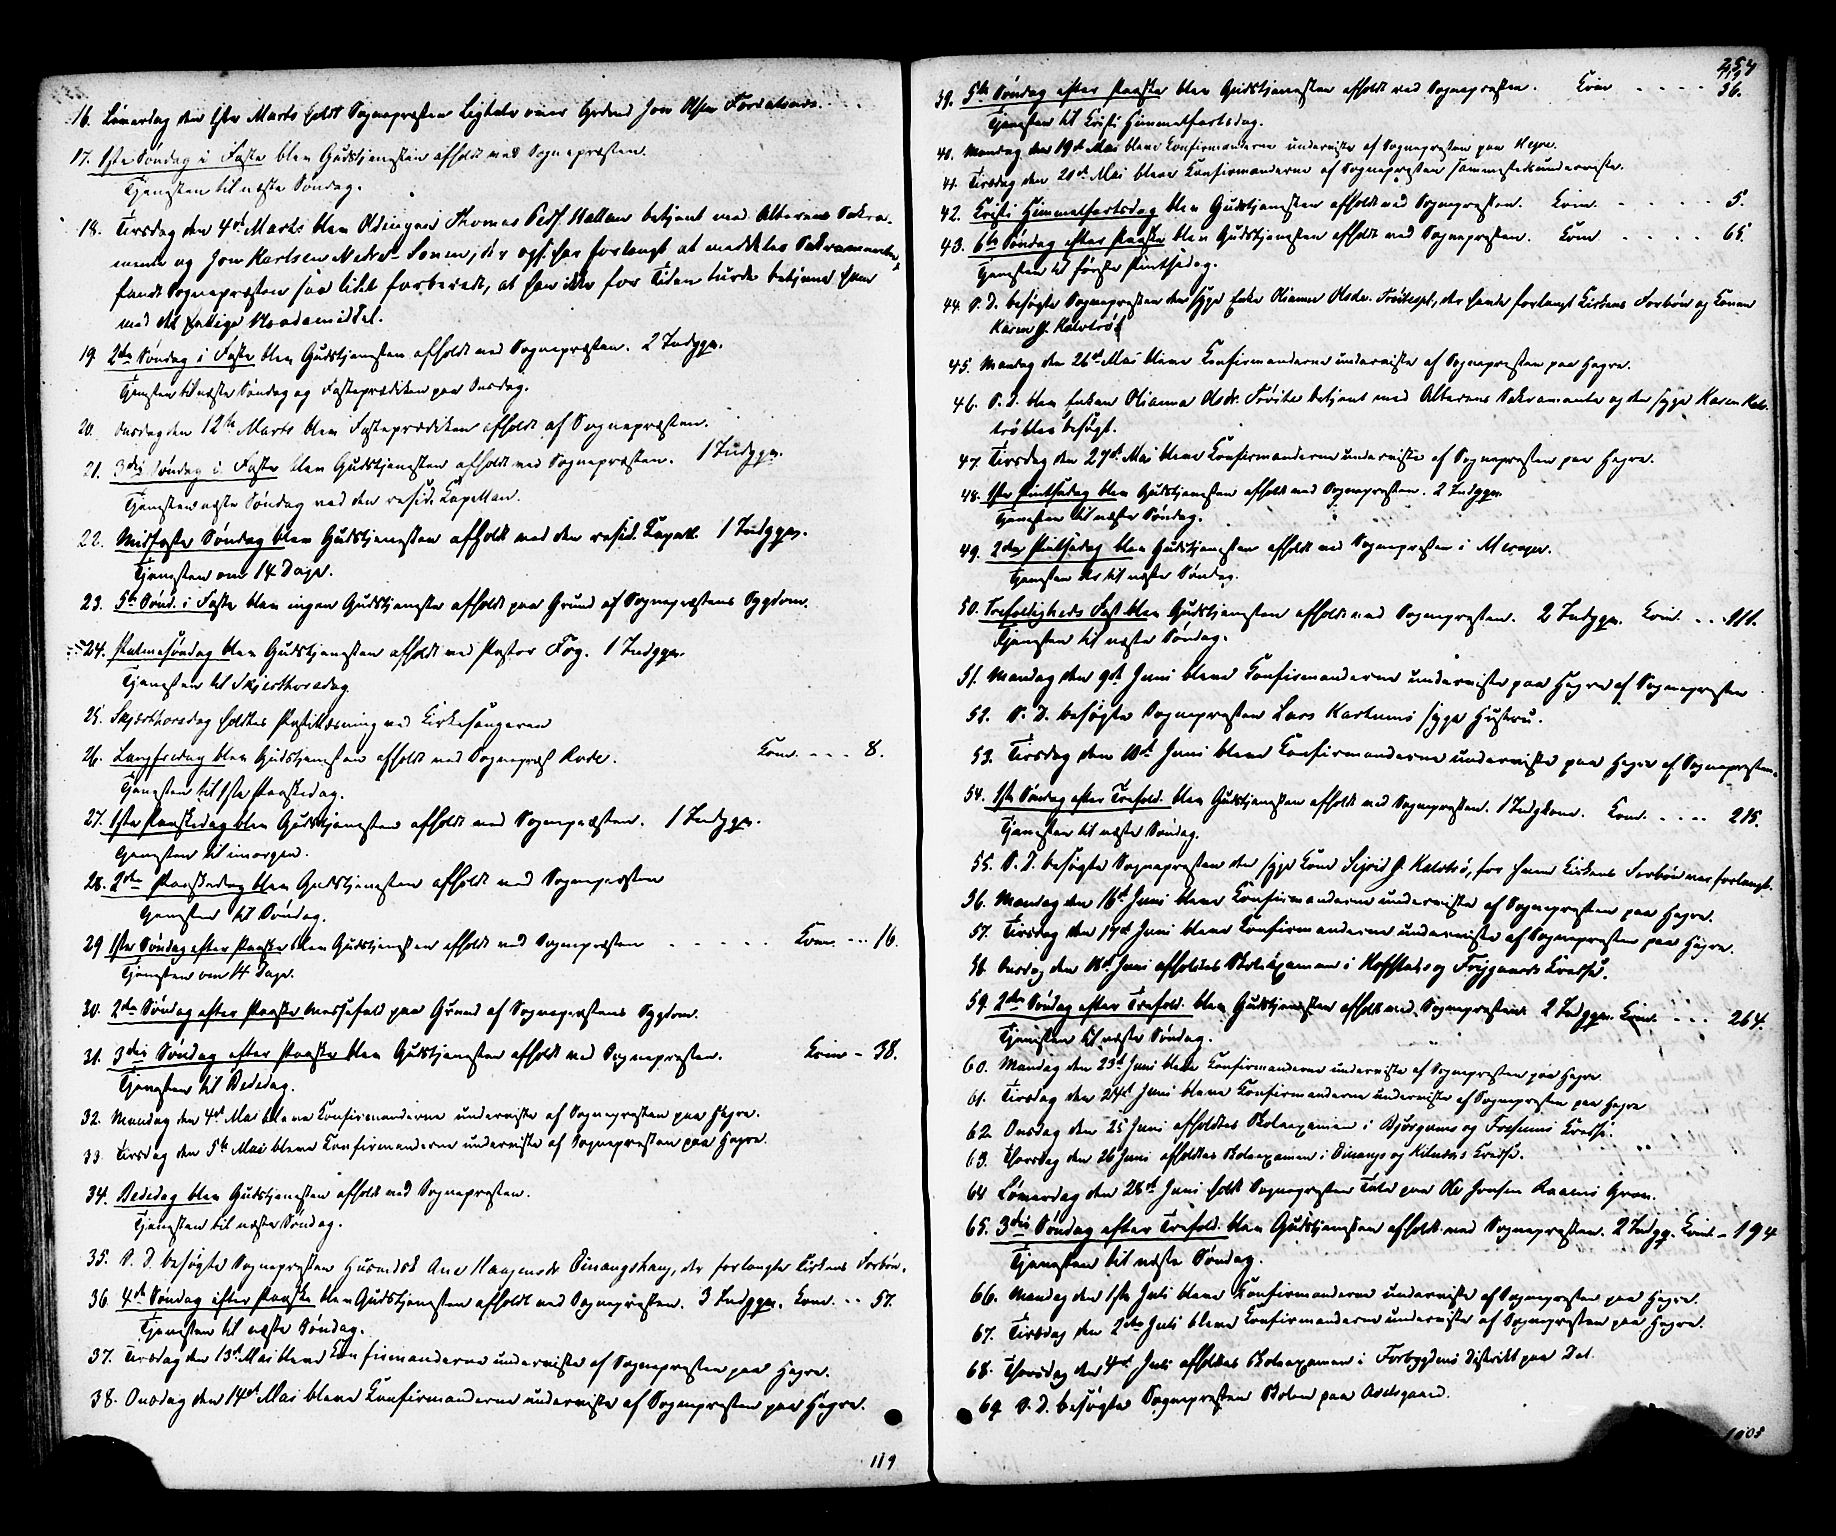 16. Løverdag den 1ste Marts holdt Sognepræsten Ligtale over Jon Olsen
17. 1ste Søndag i Faste blev Gudstjenesten afholdt ved Sognepræsten.
Tjenesten til næste Søndag.
18. Tirsdag den 4de Marts blev Thomas Peds. betjent med Alterens Sakra-
mente og Jon Karlsen Nedre- der ogs. har forlangt at meddeles Sakramentet,
fandt Sognepræsten saa lidt forberedt, at han ikke for Tiden turde betjene ham
med det hellige Naademiddel.
19. 2den Søndag i Faste blev Gudstjenesten afholdt ved Sognepræsten. 2 Indggn.
Tjenesten til næste Søndag og Fasteprædiken paa Onsdag.
20. Onsdag den 12te Marts blev Fasteprædiken afholdt af Sognepræsten.
21. 3die Søndag i Faste blev Gudstjenesten afholdt ved Sognepræsten. 1 Indggn.
Tjenesten næste Søndag ved den resid. Kapellan.
22. Midfaste Søndag blev Gudstjenesten afholdt ved den resid. Kapell. 1 Indggn.
Tjenesten om 14 Dage.
23. 5te Sønd. i Faste blev ingen Gudstjeneste afholdt paa Grund af Sognepræstens Sygdom.
24. Palmesøndag blev Gudstjenesten afholdt ved Pastor Fog. 1 Indggn.
Tjenesten til Skjærthorsdag
25. Skjærthorsdag holdtes Postillæsning ved Kirkesangeren
26. Langfredag blev Gudstjenesten afholdt ved Sognepræst Rode. Kom. - - - 8.
Tjenesten til 1ste Paaskedag.
27. 1ste Paaskedag blev Gudstjenesten afholdt ved Sognepræsten. 1 Indggn.
Tjenesten til imorgen.
28. 2den Paaskedag blev Gudstjenesten afholdt ved Sognepræsten
Tjenesten til Søndag.
29 1ste Søndag efter Paaske blev Gudstjenesten afholdt ved Sognepræsten - - - - - Kom. - - 16.
Tjenesten om 14 Dage.
30. 2den Søndag efter Paaske messefald paa Grund af Sognepræstens Sygdom.
31. 3die Søndag efter Paaske blev Gudstjenesten afholdt ved Sognepræsten. Kom - 38.
Tjenesten til Bededag.
32. Mandag den 4de Mai bleve Konfirmanderne underviste af Sognepræsten paa Hegre.
33. Tirsdag den 5te Mai bleve Konfirmanderne underviste af Sognepræsten paa Hegre.
34. Bededag blev Gudstjenesten afholdt ved Sognepræsten.
Tjenesten til næste Søndag.
35. S. D. besøgte Sognepræsten Ane der forlangte Kirkens Forbøn.
36. 4de Søndag efter Paaske blev Gudstjenesten afholdt ved Sognepræsten. 3 Indggn. Kom. - - 57.
Tjenesten til næste Søndag.
37. Tirsdag den 13de Mai bleve Konfirmanderne underviste af Sognepræsten paa Hegre.
38. Onsdag den 14de Mai bleve Konfirmanderne underviste af Sognepræsten paa Hegre.
119
257
39. 5te Søndag efter Paaske blev Gudstjenesten afholdt ved Sognepræsten. Kom - - - - 36.
Tjenesten til Kristi Himmelfartsdag.
40. Mandag den 19de Mai bleve Konfirmanderne underviste af Sognepræsten paa Hegre.
41. Tirsdag den 20de Mai bleve Konfirmanderne af Sognepræsten sammesteds underviste.
42. Kristi Himmelfartsdag blev Gudstjenesten afholdt ved Sognepræsten. Kom. - - - - 5.
43. 6te Søndag efter Paaske blev Gudstjenesten afholdt ved Sognepræsten. Kom - - - - 65.
Tjenesten til første Pintsedag.
44. S. D. besøgte Sognepræsten den syge Enke Olianna Olsdr. der havde forlangt Kirkens Forbøn og Konen
Karen J.
45. Mandag den 26de Mai bleve Konfirmanderne underviste af Sognepræsten paa Hegre.
46. S. D. blev Enken Olianna Olsdr. betjent med Alterens Sakramente og den syge Karen
blev besøgt.
47. Tirsdag den 27de Mai bleve Konfirmanderne underviste af Sognepræsten paa Hegre.
48. 1ste Pintsedag blev Gudstjenesten afholdt ved Sognepræsten. 2 Indggn.
Tjenesten til næste Søndag.
49. 2den Pintsedag blev Gudstjenesten afholdt ved Sognepræsten i Meraker.
Tjenesten her til næste Søndag.
50. Trefoldigheds Fest blev Gudstjenesten afholdt ved Sognepræsten. 2 Indggn. Kom. - - 111.
Tjenesten til næste Søndag.
51. Mandag den 9de Juni bleve Konfirmanderne underviste paa Hegre af Sognepræsten
52. S. D. besøgte Sognepræsten Lars syge Hustru.
53. Tirsdag den 10de Juni bleve Konfirmanderne underviste paa Hegre af Sognepræsten.
54. 1ste Søndag efter Trefold. blev Gudstjenesten afholdt ved Sognepræsten. 1 Kom. - - - - 215.
Tjenesten til næste Søndag.
55. S. D. besøgte Sognepræsten den syge Kone for hvem Kirkens Forbøn var forlangt.
56. Mandag den 16de Juni bleve Konfirmanderne underviste af Sognepræsten paa Hegre.
57. Tirsdag den 17de Juni bleve Konfirmanderne underviste af Sognepræsten paa Hegre.
58. Onsdag den 18de Juni afholdtes Skoleexamen i Hofstads og Kredse.
59. 2den Søndag efter Trefold. blev Gudstjenesten afholdt ved Sognepræsten. 2 Indggn. Kom. - - - 264.
Tjenesten til næste Søndag.
60. Mandag den 23de Juni bleve Konfirmanderne underviste af Sognepræsten paa Hegre
61. Tirsdag den 24de Juni bleve Konfirmanderne underviste af Sognepræsten paa Hegre
62. Onsdag den 25 Juni afholdtes Skoleexamen i Bjørgums og Kredse.
63. Thorsdag den 26 Juni afholdtes Skoleexamen i og Kredse.
64 Løverdag den 28de Juni holdt Sognepræsten Tale paa Ole Jonsen Grav.
65. 3die Søndag efter Trefold. blev Gudstjenesten afholdt ved Sognepræsten. 2 Indgg. Kom. - 194
Tjenesten til næste Søndag.
66. Mandag den 1ste Juli bleve Konfirmanderne underviste af Sognepræsten paa Hegre.
67. Tirsdag den 2den Juli bleve Konfirmanderne underviste af Sognepræsten paa Hegre.
68. Thorsdag den 4de Juli afholdtes Skoleexamen i Forbygdens Distrikt paa
69 S. D. besøgte Sognepræsten Skolen paa